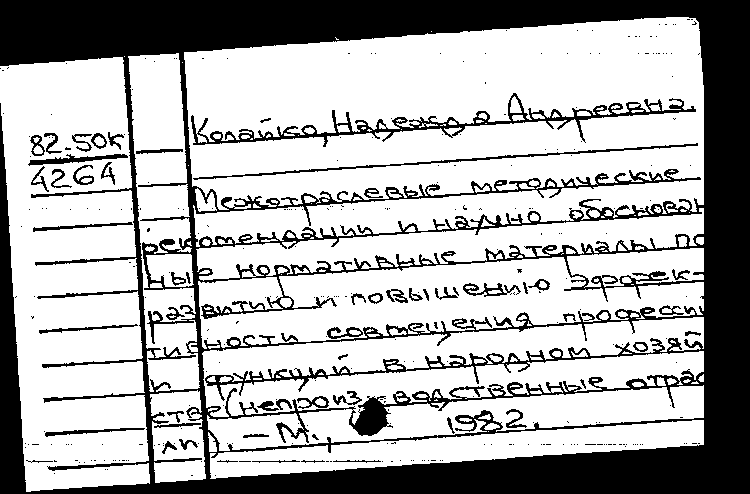 82-50к
4264
Колайко, Надежда Андреевна.
Межотраслевые методические
рекомендации и научно обоснован
ные нормативные материалы по
развитию и повышению эффек-
тивности совмещения професси
и функций в народном хозяй
стве (непроизводственные отрас
ли). – М., 1982.